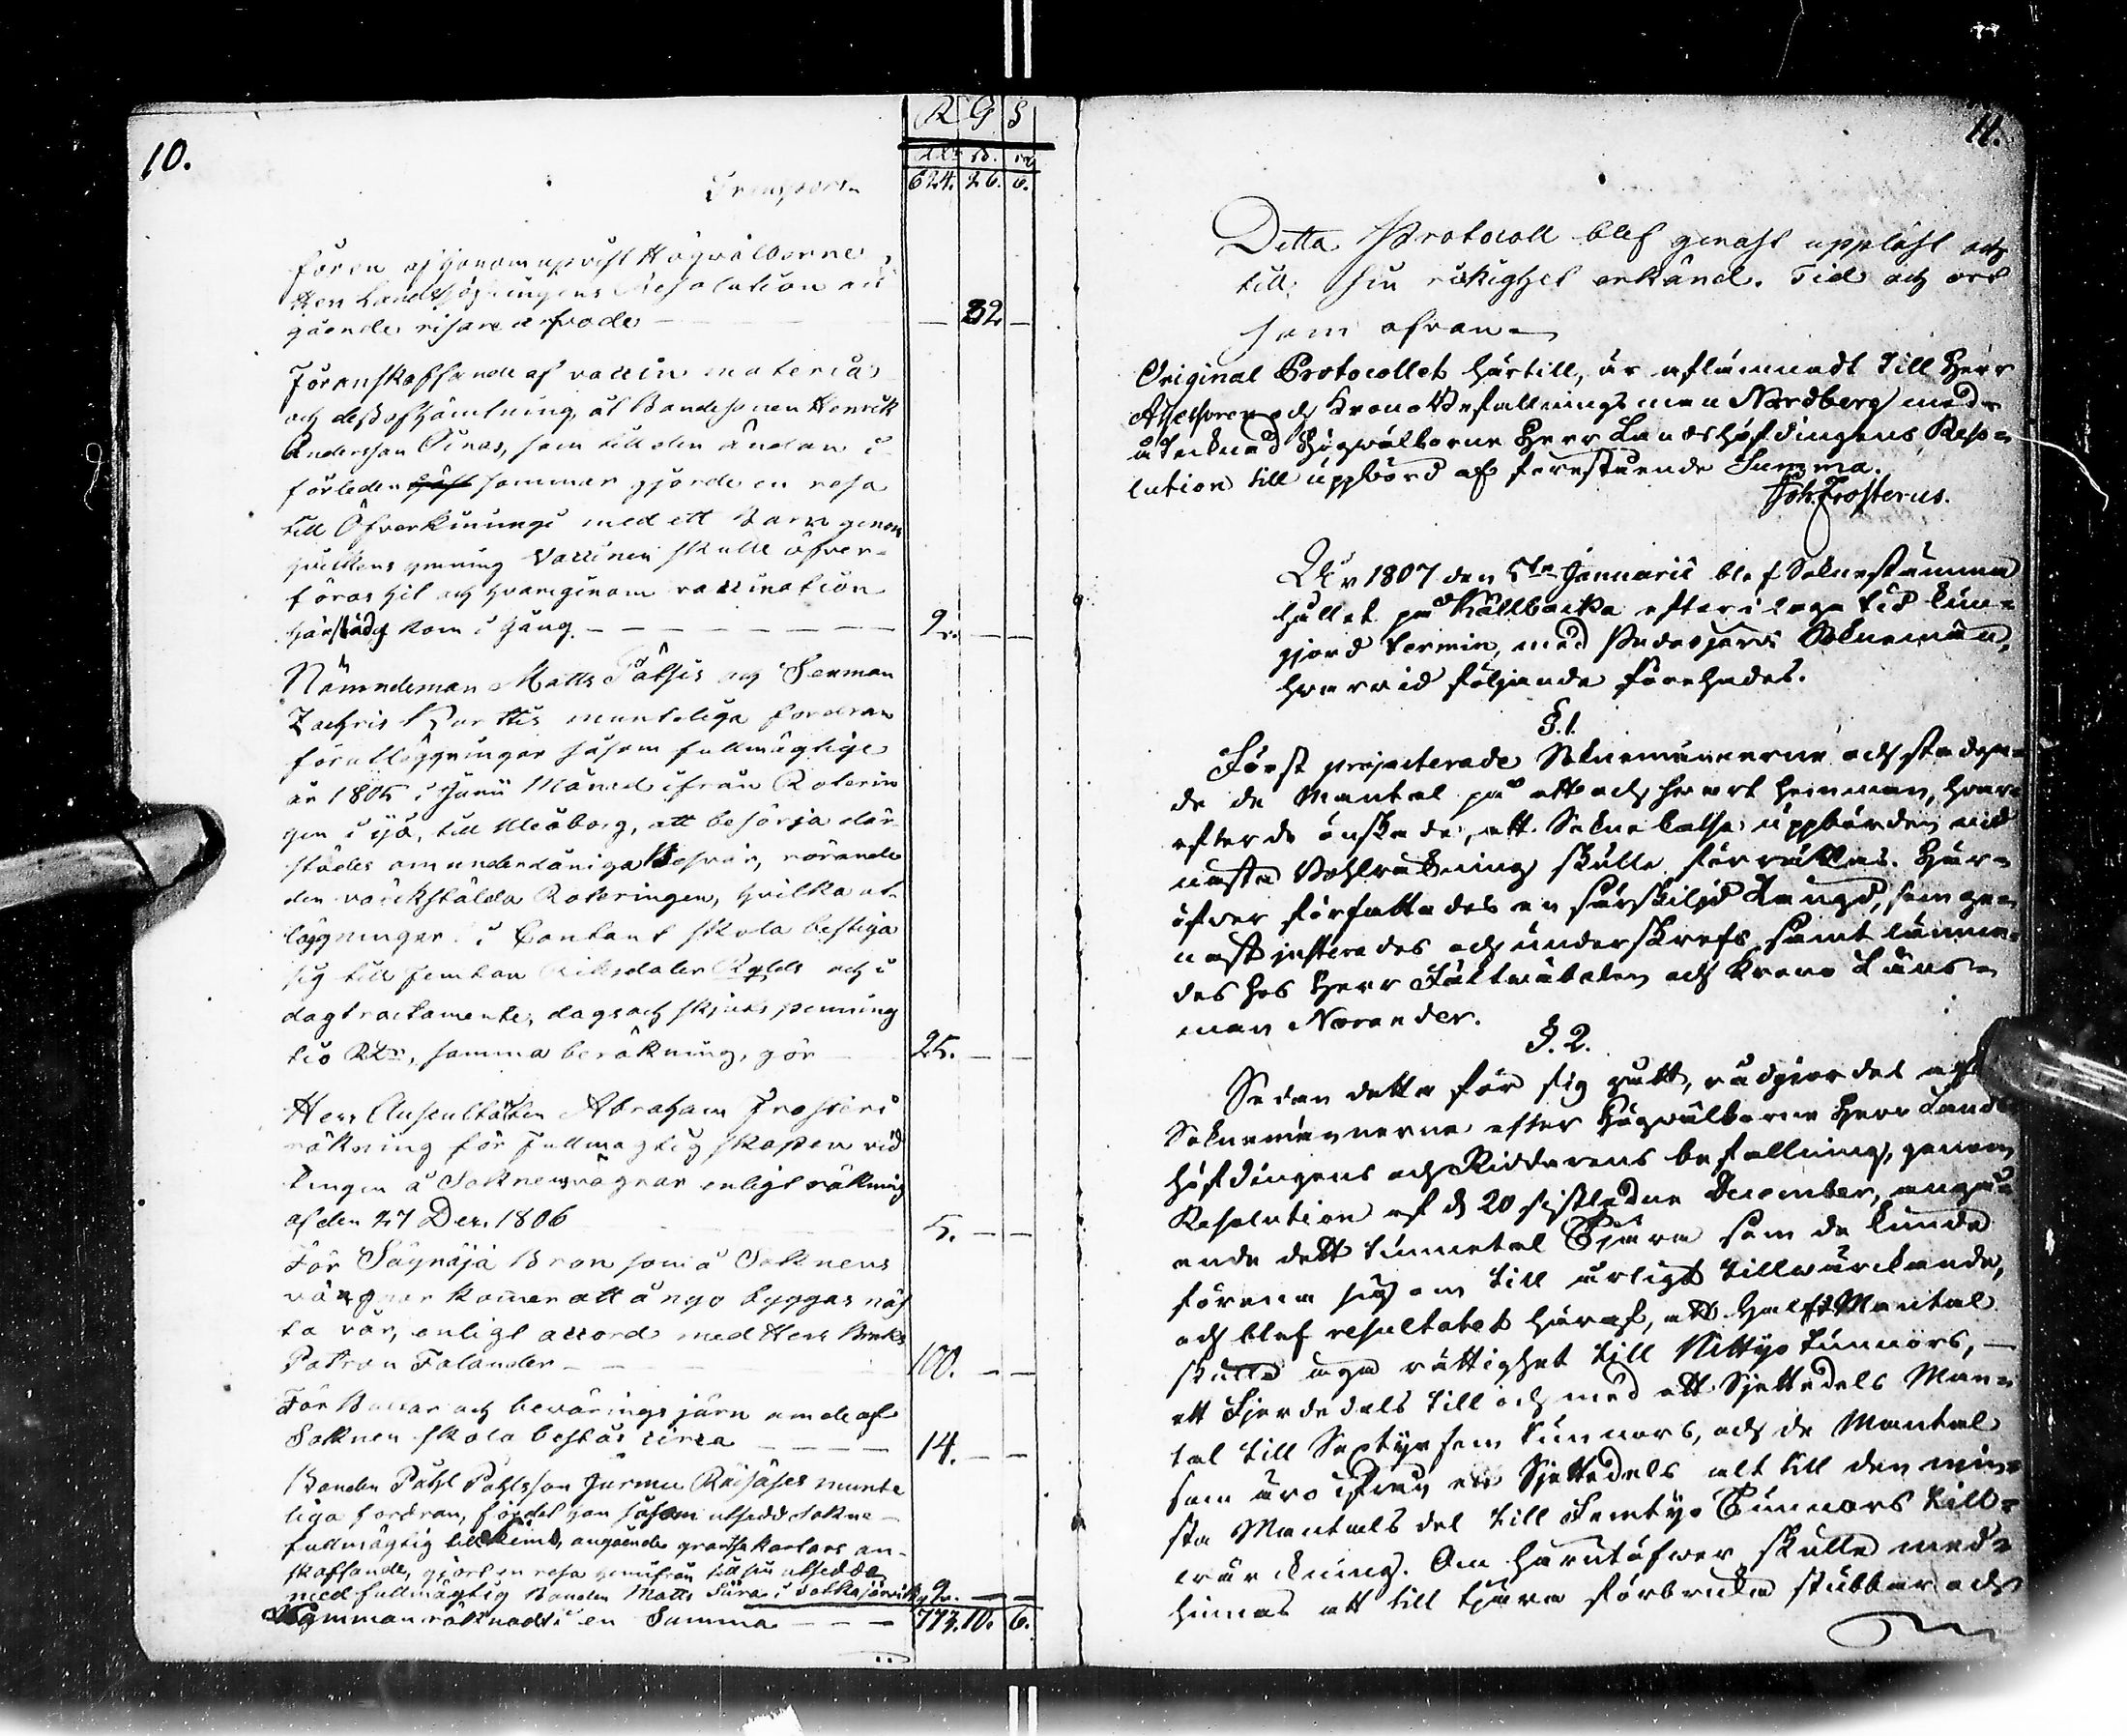 10.
R G S
Rdr ß. rs
Transport 624. 26. 6.
för en af honom uprest Högvälborne
Herr Landshöfdingens Resolution an
gående resare arfvode — — 32 —
För anskaffande af vaccin materia
och dess afhämtning, åt Bondesonen Henrik
Andersson Sinas, som till den ändan i
förleden sommar gjorde en resa
till Öfverkiminge med ett Barn genom
hvilkens ympning Vaccinen skulle öfver-
föras hit och hvarigenom vaccination
härstädes kom i gång — — — 9. — —
Nämndeman Matts Pätsis och Sexman
Zachris Hurttis munteliga fordran
för utläggningar såsom fullmägtige
år 1805 i Junii Månad ifrån Roterin
gen i Ijå, till Uleåborg, att besörja där
städes om underdåniga Besvär, rörande
den värckstälda Roteringen, hvilka ut-
läggningar i Contant skola bestiga
sig till femton Riksdaler Rgldr och i
dagtractamente, dags och skjuts penning
tio Rdr, samma beräkning, gör — 25. — —
Herr Auscultanten Abraham Frosteri
räkning för Fullmagtigskapen vid
Tingen å Soknens vägnar enligt räkning
af den 27 Dec. 1806 5. — —
För Sägnäjä Bron som å Soknens
vägnar kommer att å nyo byggas näs
ta vår, enligt accord med Herr Bruks
Patron Falander — 100. — —
För Bössor och bevärings järn om de af
Soknen skola bestås circa — — 14. — —
Bonden Påhl Påhlsson Jurmu Räisäses munte
liga fordran, för det han såsom utsedd Sokne-
fullmägtig till Kimo, angående gräntse kartors an-
skaffande, gjort en resa hemifrån till sin utsedde
med fullmägtig Bonden Matts Siira i Sotkajärvi 9. — —
Tillsamman räknadt i en Summa — — — 773. 10. 6.
11.
Detta Protocoll blef genast uppläst och
till sin riktighet erkänd. Tid och ort
som ofvan.
Original Protocollet härtill, är aflämnadt till Herr
Assessoren och Krono Befallningsman Nordberg med-
åtecknad Högvälborne Herr Landshöfdingens Reso-
lution till uppbörd af förestående Summa.
Joh: Frosterus.
År 1807 den 5te Januarii blef Soknestämma
hållet på Källbacka efter i laga tid kun-
gjord termin, med Pudasjervi Soknemän,
hvarvid följande förehades.
§. 1.
Först projecterade Soknemännerne och stadga-
de de Mantal på ett och hvart hemman, hvar-
efter de önskade, att Sokne Cassæ uppbörden vid
nästa Vohlräkning skulle förrättas. Här-
öfver författades en särskiljd Längd, som ge-
nast justerades och underskrefs samt lämna-
des hos Herr Fältväbelen och Krono Läns-
man Norander.
§. 2.
Sedan detta för sig gått, rådgjordes af
Soknemännerne efter Högvälborne Herr Lands-
höfdingens och Riddarens befallning, genom
Resolution af d 20 sistledne December, angå-
ende dett tunnetal Tjära som de kunde
förena sig om till årligt tillwärckande,
och blef resultatet häraf, att Halft Mantal
skulle äga rättighet till Nittijo Tunnors, —
ett Fjerdedels till och med ett Sjettedels Man-
tal till Sextijo fem tunnors, och de Mantal
som äro ifrån en Sjettedels alt till den min-
sta Mantals del till Femtijo Tunnors till-
wärckning. Om härutöfwer skulle med-
hinnas att till tjära förbruka stubbar och